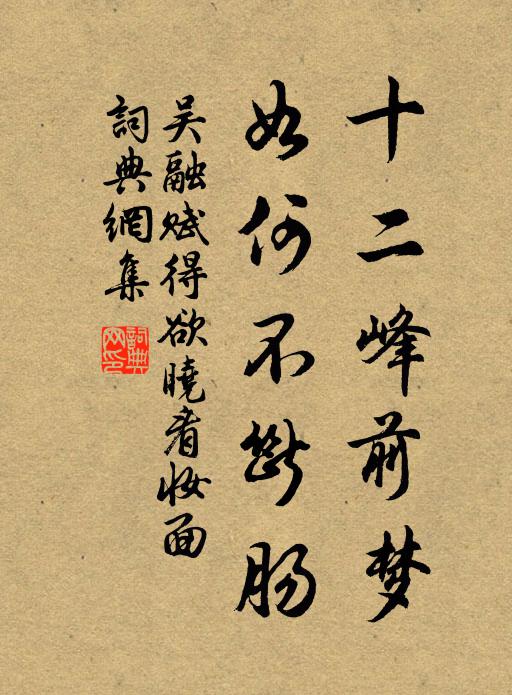 十二峰前梦
如何不断肠
吴融赋得欲曉看妆面
詞典網集
詞典网印